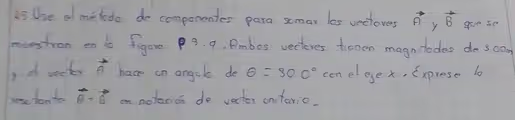 Use el método de componentes para sumar los vectores A y B que se
muestran en la figura P 3.9. Ambos vectores tienen magnitudes de 3.00m
y el vector A hace un angulo de θ = 30.0° con el eje x. Exprese la
resultante A + B en notación de vector unitario.